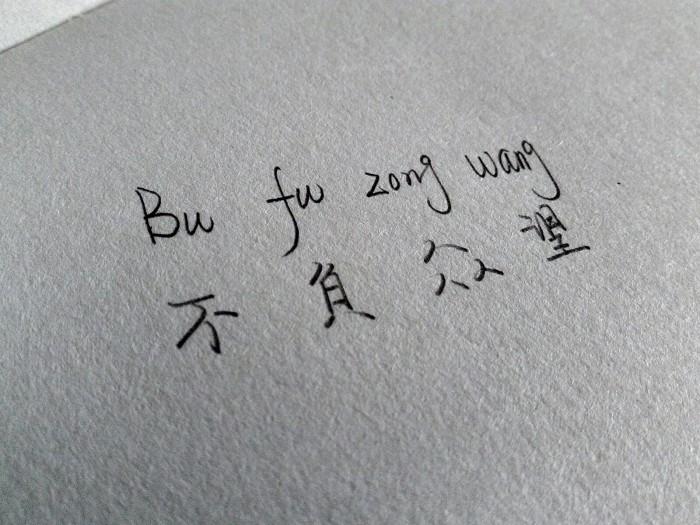 Bu fu zong wang
不負众望